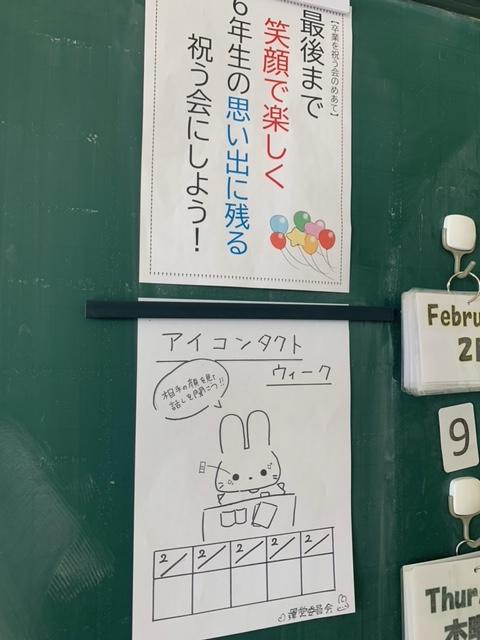 【卒業を祝う会のめあて】
最後まで
笑顔で楽しく
6年生の思い出に残る
祝う会にしよう!
アイコンタクト
ウィーク
相手の顔を見て
話しを聞こう!!
目
2/ 2/ 2/ 2/ 2/
運営委員会
Febru
2
9
Thur
木